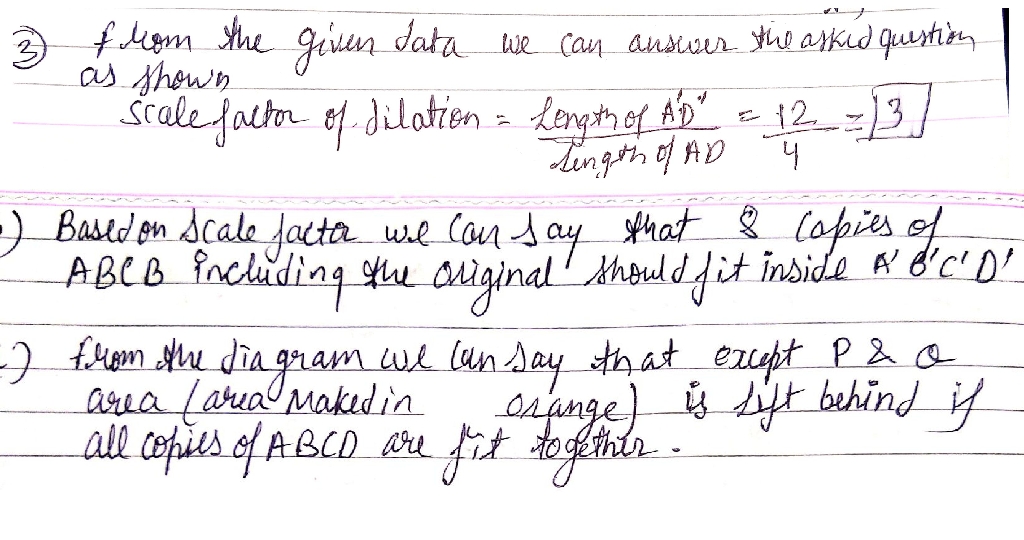 ③ from the given data we can answer the asked question
as shown
Scale factor of dilation = Length of A'D' / Length of AD = 12 / 4 = 3
) Based on scale factor we can say that 8 copies of
ABCB including the original should fit inside A'B'C'D'
) from the diagram we can say that except P & Q
area (area Maked in orange) is lift behind if
all copies of ABCD are fit together.